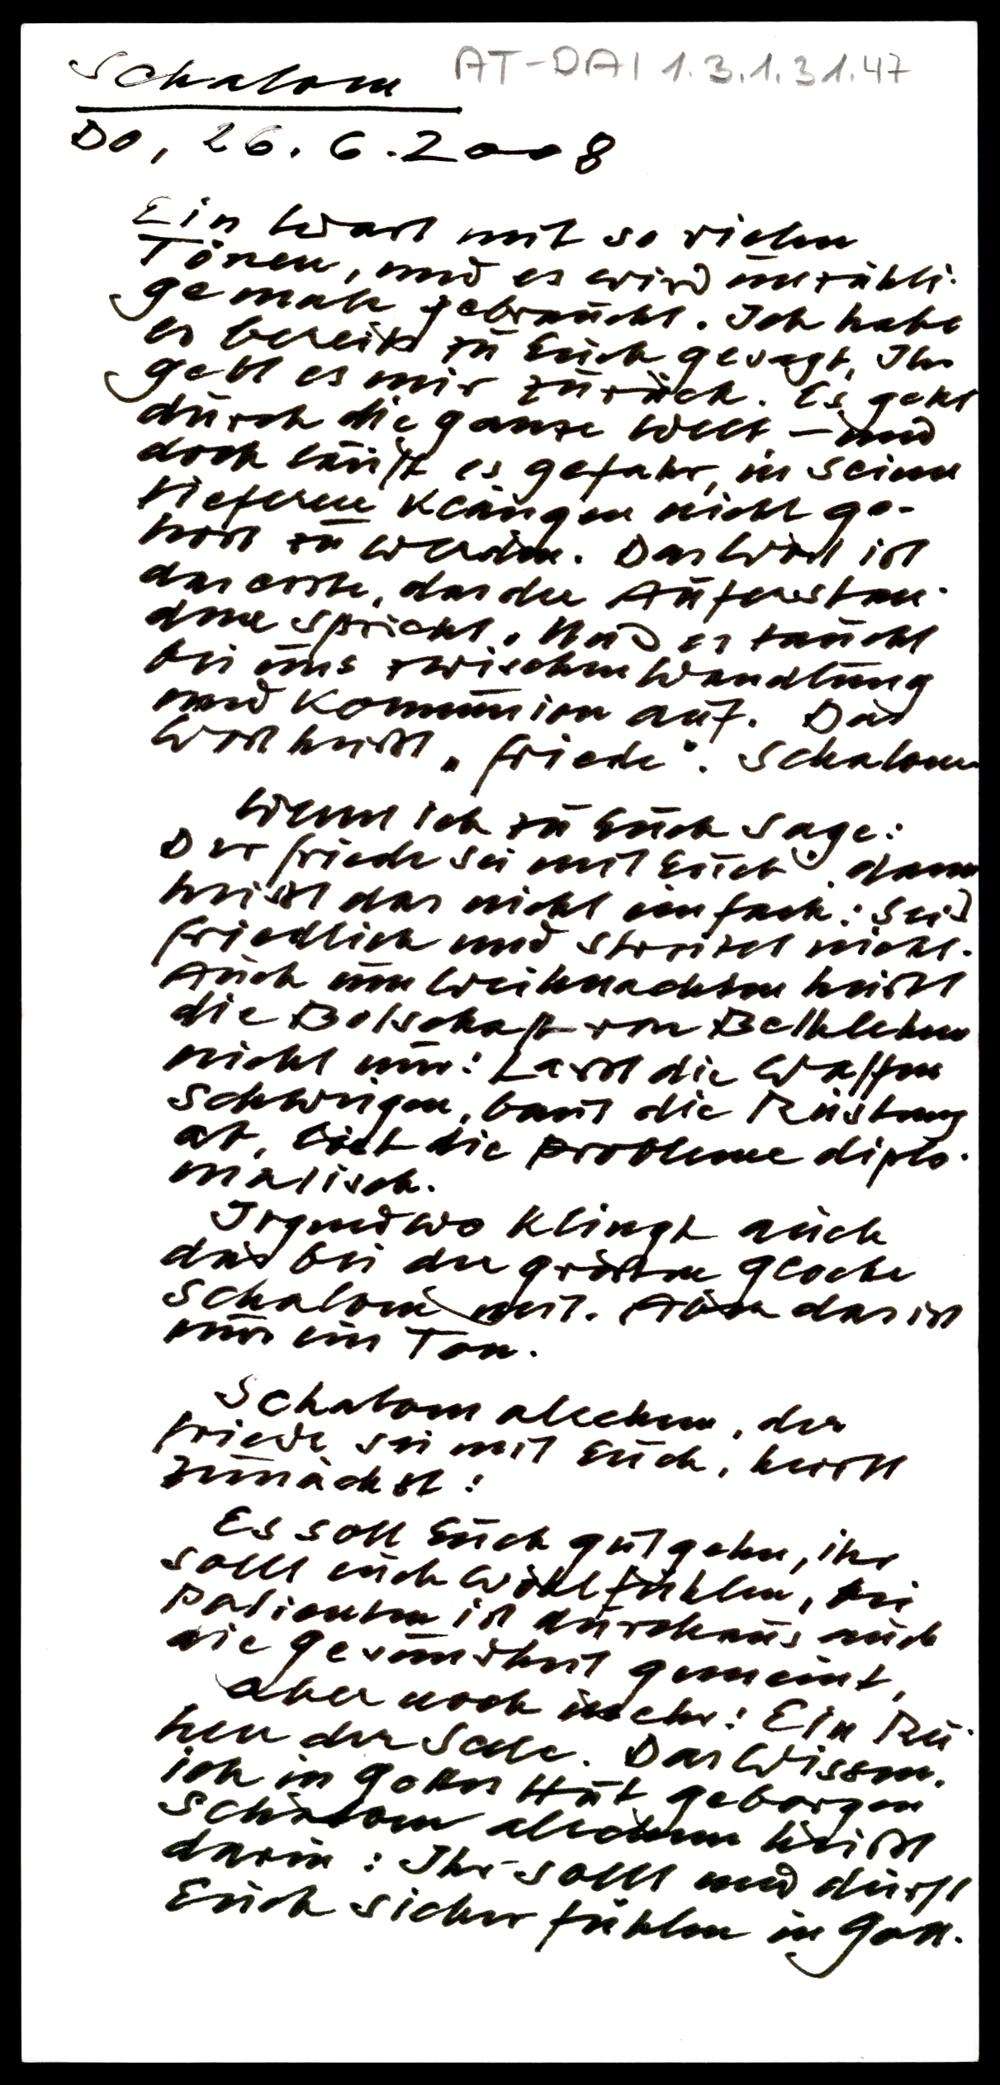 Schalom AT-DAI 1.3.1.31.47
Do, 26.6.2008
Ein Wort mit so vielen
Tönen, und es wird unzähli-
gemale gebraucht. Ich habe
es bereits zu Euch gesagt, Ihr
gebt es mir zurück. Es geht
durch die ganze Welt – und
doch läuft es gefahr, in seinen
tieferen Klängen nicht ge-
hört zu werden. Das Wort ist
das erste, das der Auferstan-
dene spricht. Und es taucht
bei uns zwischen Wandlung
und Kommunion auf. Das
Wort heißt „friede". Schalom
Wenn ich zu Euch sage:
Der friede sei mit Euch, dann
heißt das nicht einfach: Seid
friedlich und streitet nicht.
Auch um Weihnachten heißt
die Botschaft von Bethlehem
nicht nur: Lasst die Waffen
schweigen, baut die Rüstung
ab, löst die Probleme diplo-
matisch.
Irgendwo klingt auch
das bei der großen glocke
Schalom mit. Aber das ist
nur ein Ton.
Schalom alechem, der
friede sei mit Euch, heisst
zunächst:
Es soll Euch gut gehn, ihr
sollt euch wohl fühlen, bei
Patienten ist durchaus auch
die gesundheit gemeint,
aber noch mehr: Ein Ru-
hen der Seele. Das Wissen,
ich in gottes Hut geborgen
Schalom alechem heißt
darin: Ihr sollt und dürft
Euch sicher fühlen in gott.